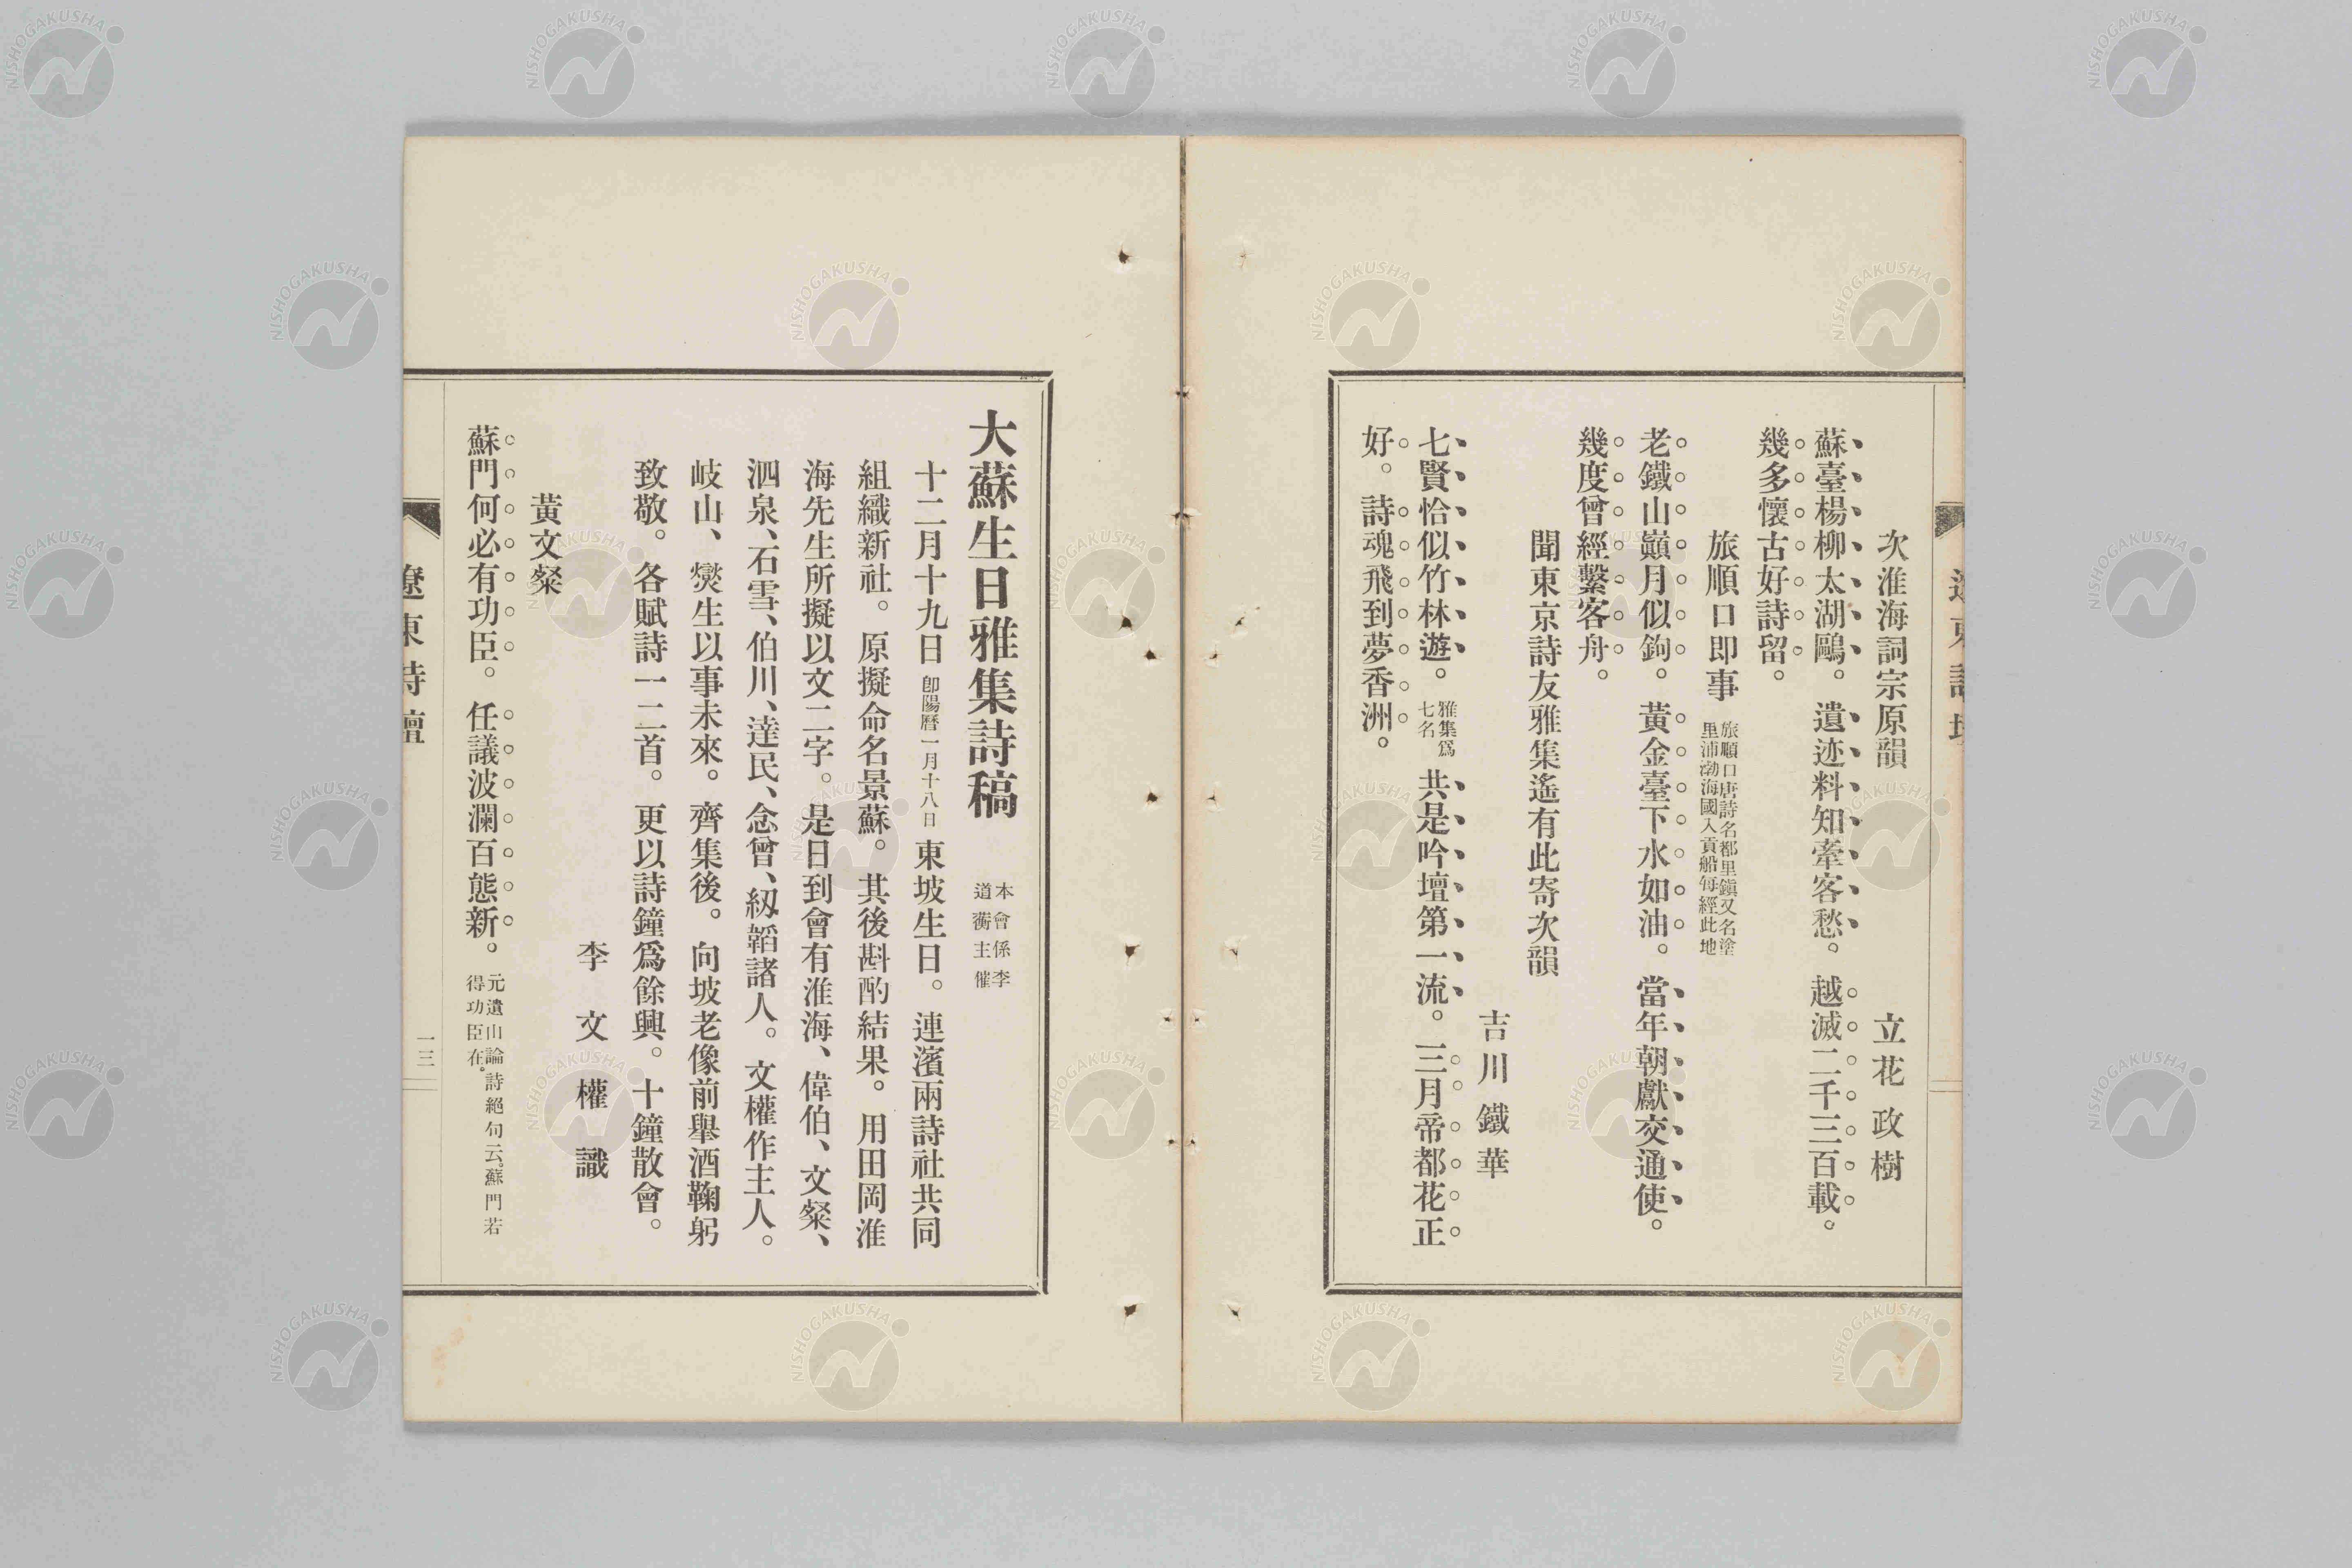 次淮海詞宗原韻　立花政樹
蘇臺楊柳太湖鷗。遺迹料知牽客愁。越滅二千三百載。
幾多懷古好詩留。
旅順口即事　旅順口唐詩名都里鎭又名塗
里浦渤海國入貢船每經此地
老鐵山巓月似鉤。黃金臺下水如油。當年朝獻交通使。
幾度曾經繫客舟。
聞東京詩友雅集遙有此寄次韻
吉川鐵華
七賢恰似竹林遊。雅集爲七名　共是吟壇第一流。三月帝都花正
好。詩魂飛到夢香洲。
大蘇生日雅集詩稿　本會係李
道衡主催
十二月十九日卽陽曆一月十八日東坡生日。連濱兩詩社共同
組織新社。原擬命名景蘇。其後斟酌結果。用田岡淮
海先生所擬以文二字。是日到會有淮海、偉伯、文粲、
泗泉、石雪、伯川、達民、念曾、紉韜諸人。文權作主人。
岐山、爕生以事未來。齊集後。向坡老像前舉酒鞠躬
致敬。各賦詩一二首。更以詩鐘爲餘興。十鐘散會。
李文權識
黃文粲
蘇門何必有功臣。任議波瀾百態新。元遺山論詩絕句云。蘇門若
得功臣在。
遼東詩壇
一三
NISHOGAKUSHA